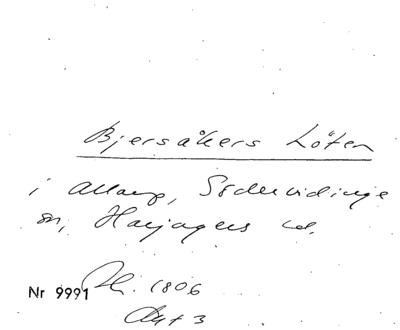 Bjersåkers Löten
i Allarp, Södervidinge
sn, Harjagers hd.
Nr 9991
1806
Akt 3